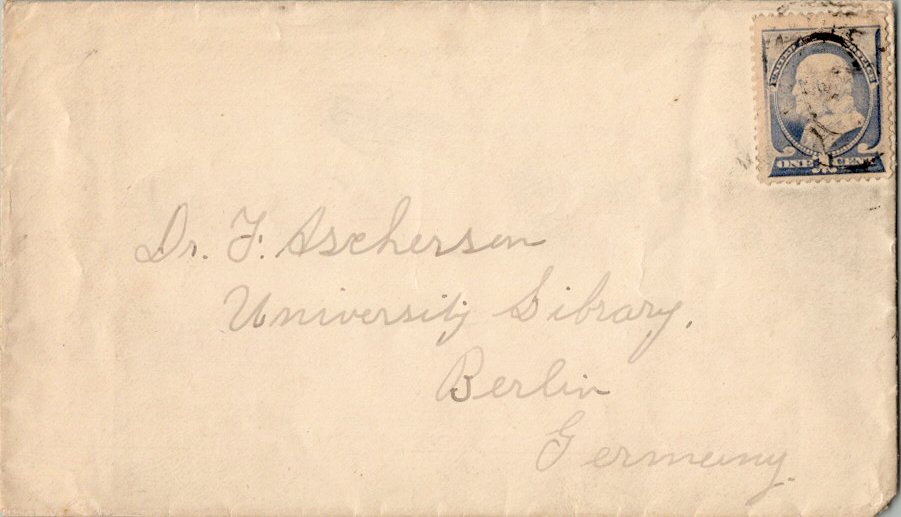 UNITED STATES POSTAGE
ONE 1 CENT
Dr. F. Ascherson
University Library,
Berlin
Germany.